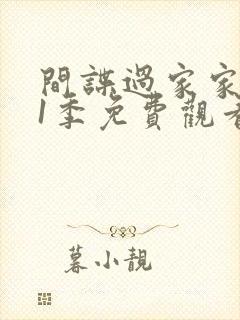 間諜過家家
1季免費觀看
暮小靚